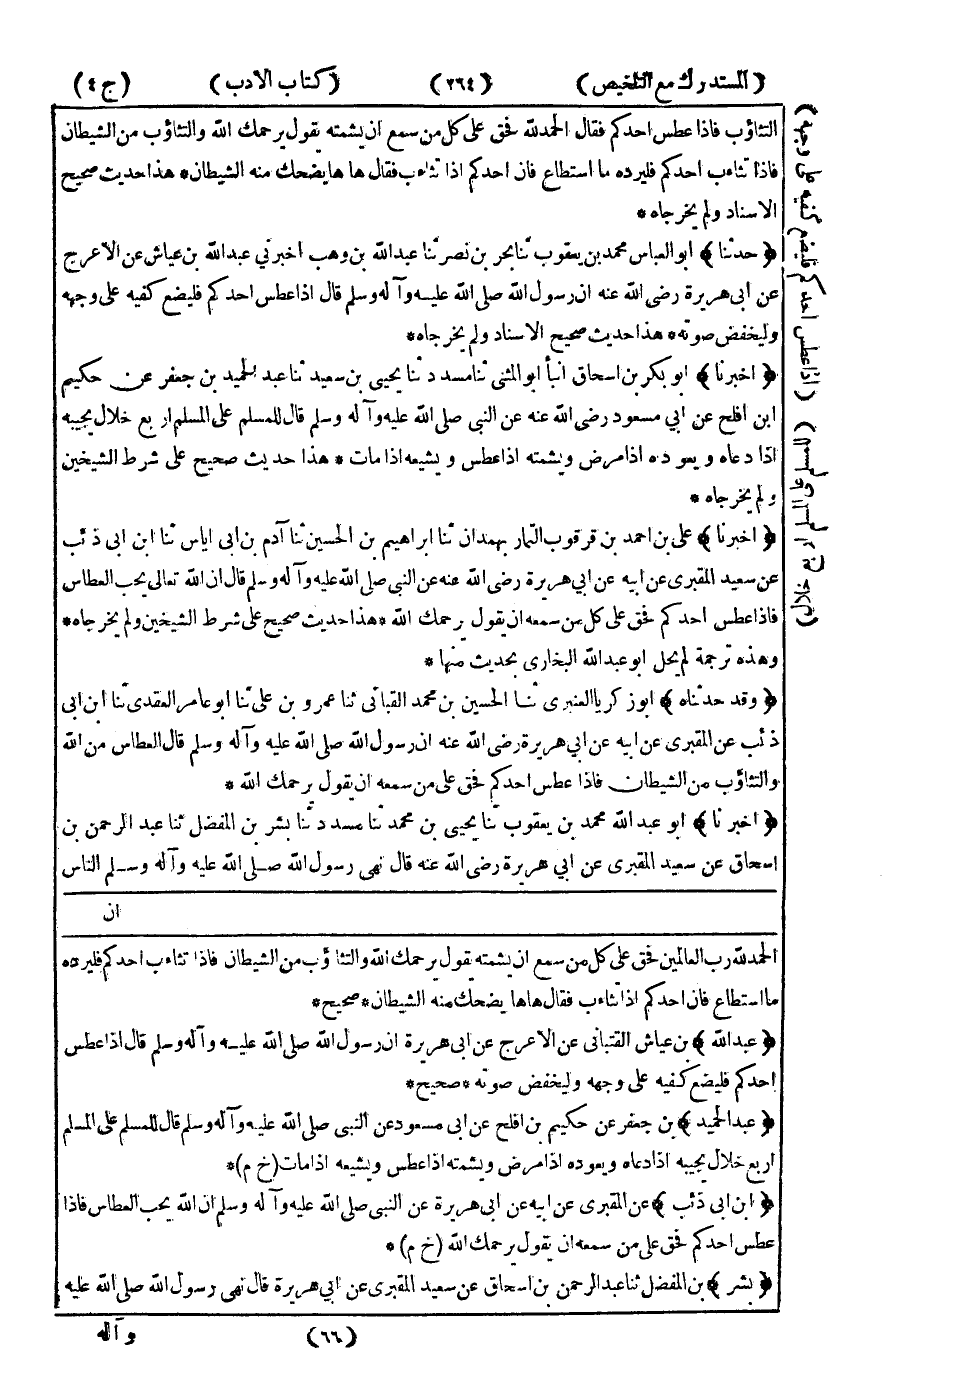 (المستدرك مع التلخيص) (٢٦٤) (كتاب الادب) (ج ٤)
التثاؤب فاذا عطس احدكم فقال الحمدلله فحق على كل من سمع ان يشمته يقول يرحمك الله والتثاؤب من الشيطان
فاذا تثاءب احدكم فليرده ما استطاع فان احدكم اذا تثاءب فقال ها ها يضحك منه الشيطان * هذا حديث صحيح
الاسناد ولم يخرجاه *
﴿ حدثنا ﴾ ابو العباس محمد بن يعقوب ثنا بحر بن نصر ثنا عبد الله بن وهب اخبرني عبدالله بن عياش عن الاعرج
عن أبى هريرة رضى الله عنه ان رسول الله صلى الله عليه وآله وسلم قال اذا عطس احدكم فليضع كفيه على وجهه
وليخفض صوته * هذا حديث صحيح الاسناد ولم يخرجاه *
﴿ اخبرنا ﴾ ابو بكر بن اسحاق انبأ ابو المثنى ثنا مسدد ثنا يحيى بن سعيد ثنا عبد الحميد بن جعفر عن حكيم
ابن افلح عن ابي مسعود رضى الله عنه عن النبى صلى الله عليه وآله وسلم قال للمسلم على المسلم اربع خلال يجيبه
اذا دعاه ويعوده اذا مرض ويشمته اذا عطس ويشيعه اذا مات * هذا حديث صحيح على شرط الشيخين
ولم يخرجاه *
﴿ اخبرنا ﴾ على بن احمد بن قرقوب التمار بهمدان ثنا ابراهيم بن الحسين ثنا آدم بن ابى اياس ثنا ابن ابى ذئب
عن سعيد المقبرى عن ابيه عن ابى هريرة رضى الله عنه عن النبى صلى الله عليه وآله وسلم قال ان الله تعالى يحب العطاس
فاذا عطس احدكم فحق على كل من سمعه ان يقول يرحمك الله * هذا حديث صحيح على شرط الشيخين ولم يخرجاه *
وهذه ترجمة لم يحل ابو عبد الله البخارى بحديث منها *
﴿ وقد حدثناه ﴾ ابوزكريا العنبرى ثنا الحسين بن محمد القبانى ثنا عمرو بن على ثنا ابو عامر العقدى ثنا ابن ابى
ذئب عن المقبرى عن ابيه عن ابى هريرة رضى الله عنه ان رسول الله صلى الله عليه وآله وسلم قال العطاس من الله
والتثاؤب من الشيطان فاذا عطس احدكم فحق على من سمعه ان يقول يرحمك الله *
﴿ اخبرنا ﴾ ابو عبد الله محمد بن يعقوب ثنا يحيى بن محمد ثنا مسدد ثنا بشر بن المفضل ثنا عبد الرحمن بن
اسحاق عن سعيد المقبرى عن ابي هريرة رضى الله عنه قال نهى رسول الله صلى الله عليه وآله وسلم الناس
ان
الحمدلله رب العالمين فحق على كل من سمع ان يشمته يقول يرحمك الله والتثاؤب من الشيطان فاذا تثاءب احدكم فليرده
ما استطاع فان احدكم اذا تثاءب فقال ها ها يضحك منه الشيطان * صحيح *
﴿ عبدالله ﴾ بن عياش القتبانى عن الاعرج عن ابى هريرة ان رسول الله صلى الله عليه وآله وسلم قال اذا عطس
احدكم فليضع كفيه على وجهه وليخفض صوته * صحيح *
﴿ عبدالحميد ﴾ بن جعفر عن حكيم بن افلح عن ابى مسعود عن النبى صلى الله عليه وآله وسلم قال للمسلم على المسلم
اربع خلال يجيبه اذا دعاه ويعوده اذا مرض ويشمته اذا عطس ويشيعه اذا مات (خ م) *
﴿ ابن ابى ذئب ﴾ عن المقبرى عن ابيه عن ابى هريرة عن النبى صلى الله عليه وآله وسلم ان الله يحب العطاس فاذا
عطس احدكم فحق على من سمعه ان يقول يرحمك الله (خ م) *
﴿ بشر ﴾ بن المفضل ثنا عبد الرحمن بن اسحاق عن سعيد المقبرى عن ابي هريرة قال نهى رسول الله صلى الله عليه
(٦٦) وآله
(اذا عطس احدكم فليضع كفيه على وجهه)
(للمسلم على المسلم اربع خلال)